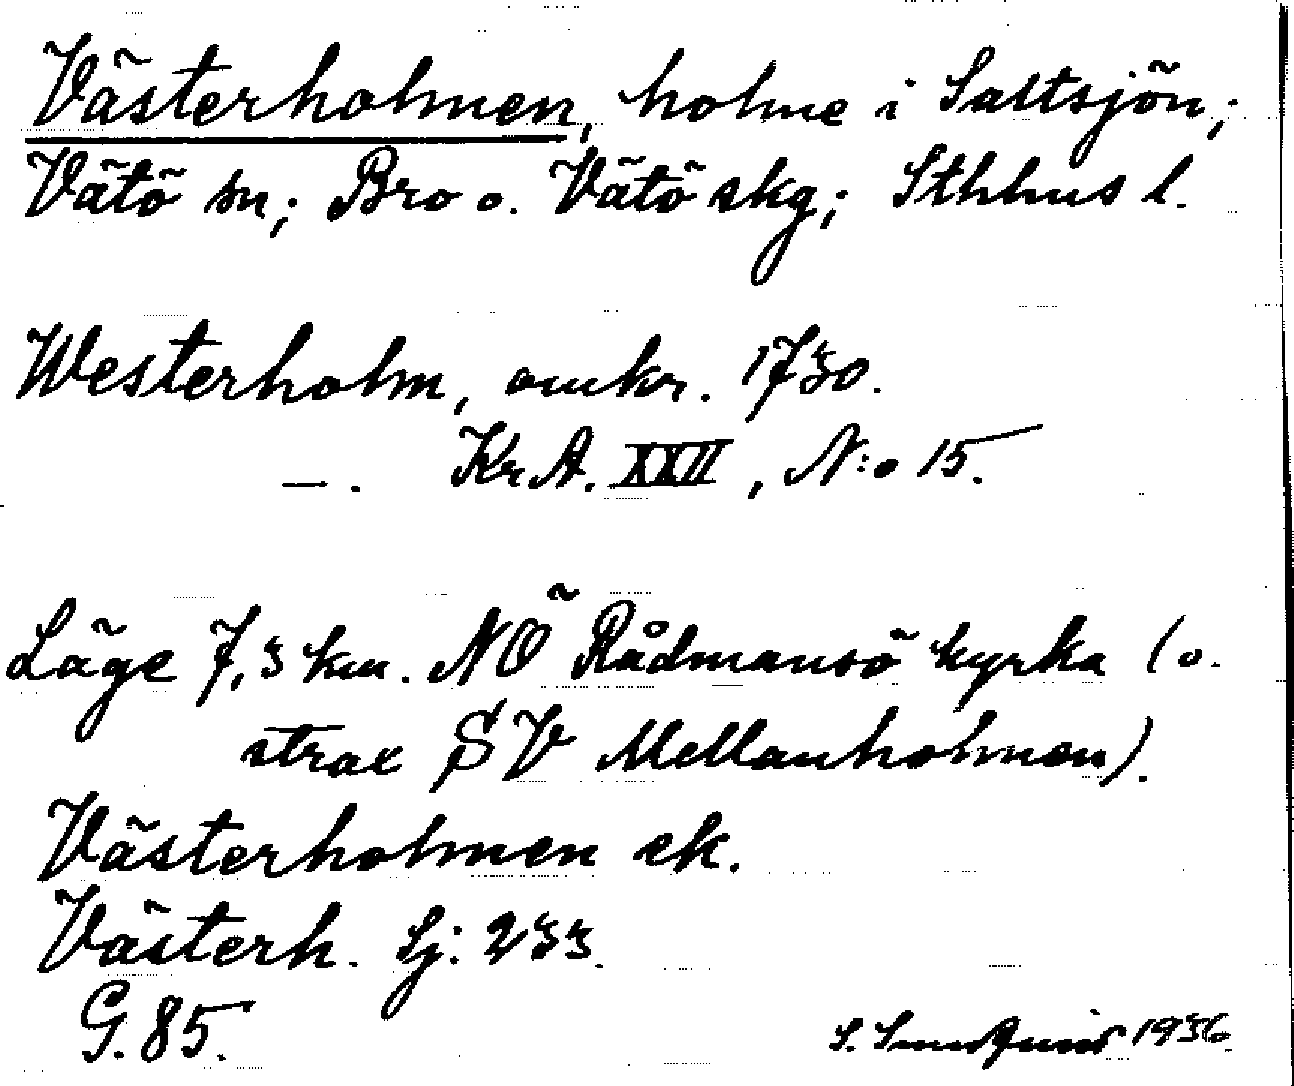 Västerholmen, holme i Saltsjön;
Vätö sn; Bro o. Vätö skg; Sthhus l.
Westerholm, omkr. 1730.
— . Kr. A. XXII, N:o 15.
Läge 7,3 km. NÖ Rådmansö kyrka (o.
strax SV Mellanholmen).
Västerholmen ek.
Västerh. Sj: 233.
G. 85.
S. Sundquist 1936